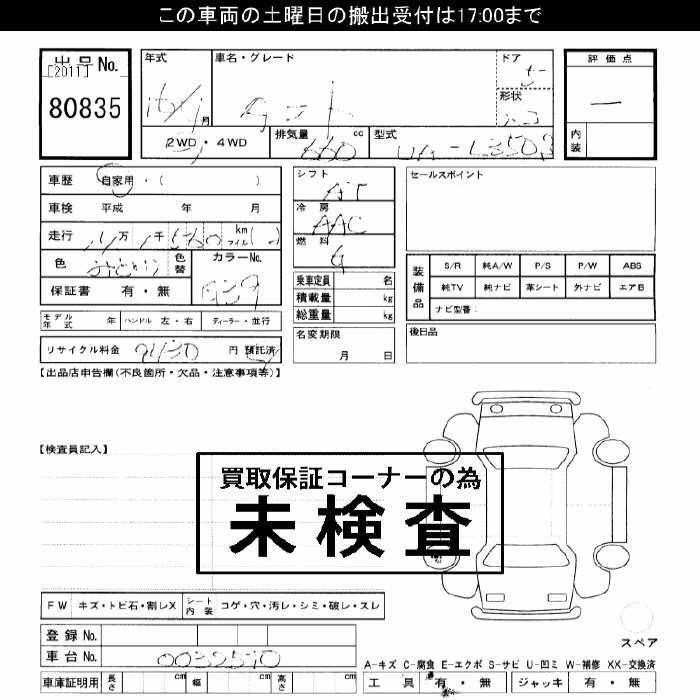 この車両の土曜日の搬出受付は17:00まで
出品No.
[2011]
80835
年式
月
車名・グレード
ドア
形状
評価点
内装
2WD・4WD
排気量 660 cc
型式 UA-L350S
車歴 自家用・( )
車検 平成 年 月
走行 万 千 km マイル( )
色
色替
カラーNo.
保証書 有・無
シフト AT
冷房 AAC
燃料 G
乗車定員 名
積載量 kg
総重量 kg
名変期限
月 日
セールスポイント
装備品
S/R 純A/W P/S P/W ABS
純TV 純ナビ 革シート 外ナビ エアB
ナビ型番:
後日品
モデル年式 年 ハンドル 左・右 ディーラー・並行
リサイクル料金 9430 円 預託済
【出品店申告欄(不良箇所・欠品・注意事項等)】
【検査員記入】
買取保証コーナーの為
未検査
FW キズ・トビ石・割レX
シート内装 コゲ・穴・汚レ・シミ・破レ・スレ
登録No.
車台No. 0032570
車庫証明用 長さ cm 幅 cm 高さ cm
スペア
A-キズ C-腐食 E-エクボ S-サビ U-凹ミ W-補修 XX-交換済
工具 有・無 ジャッキ 有・無